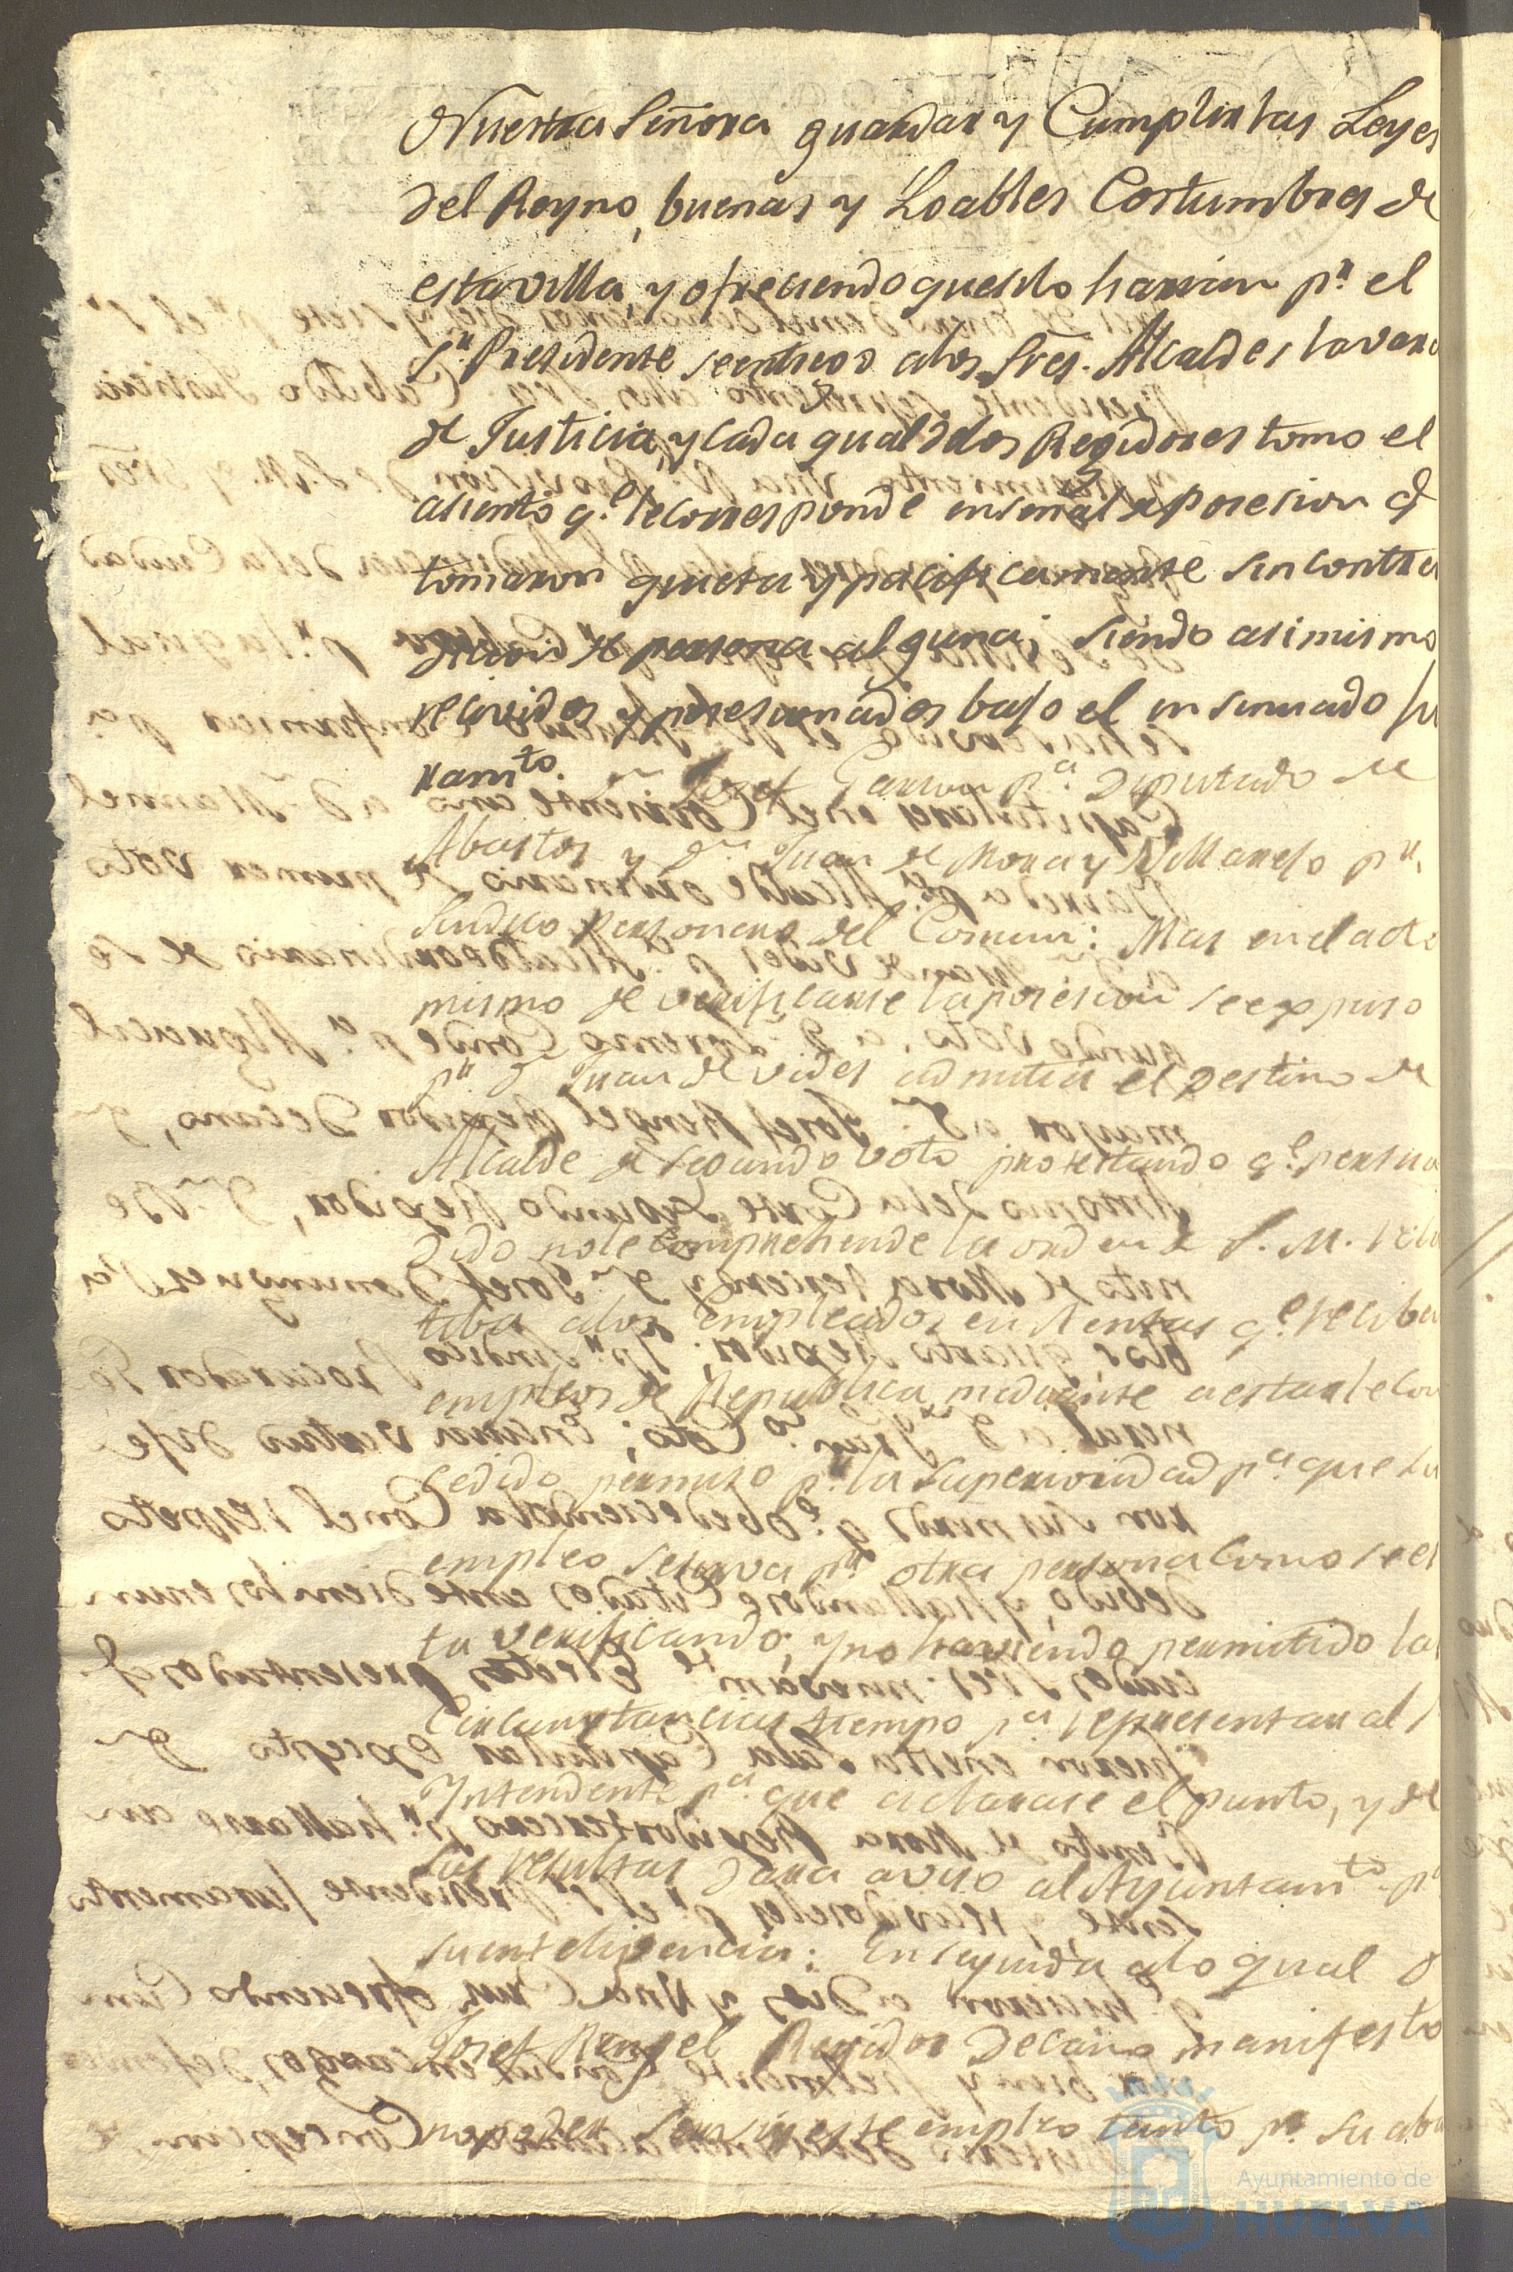 Nuestra Señora guardar y Cumplir las Leyes
del Reyno, buenas y Loables Costumbres de
esta villa, y ofreciendo que asi lo harian pr. el
Sr. Presidente se entrego a los Sres. Alcaldes la vara
de Justicia, y cada qual de los Regidores tomo el
asiento qe. le corresponde en señal de posesion q
tomaron quieta y pacificamente sin contra
dicion de persona alguna; siendo asi mismo
recividos y posesionados bajo el insinuado ju
ramto. Dn. Josef Garcia pa. Diputado de
Abastos y Dn. Juan de Mora y Villarejo pr.
Sindico Personero del Comun: Mas en el acto
mismo de verificarse la posesion se expuso
pr. Dn. Juan de Vides admitia el Destino de
Alcalde de segundo voto protestando qe. persua
dido no le comprehende la orden de S. M. rela
tiba a los empleados en Rentas qe. reciban
empleos de Republica mediante a estarle con
cedido permiso pr. la Superioridad pa. que su
empleo se sirva pr. otra persona como se es
ta verificando, y no haviendo permitido las
Circunstancias tiempo pa. representar al Sr.
Yntendente pa. que aclarase el punto, y de
sus resultas dara aviso al Ayuntamto. pa
su inteligencia: En seguida a lo qual D
Josef Rengel Regidor Decano manifesto
no poder servir este empleo tanto pr. su aba
Ayuntamiento de
HUELVA